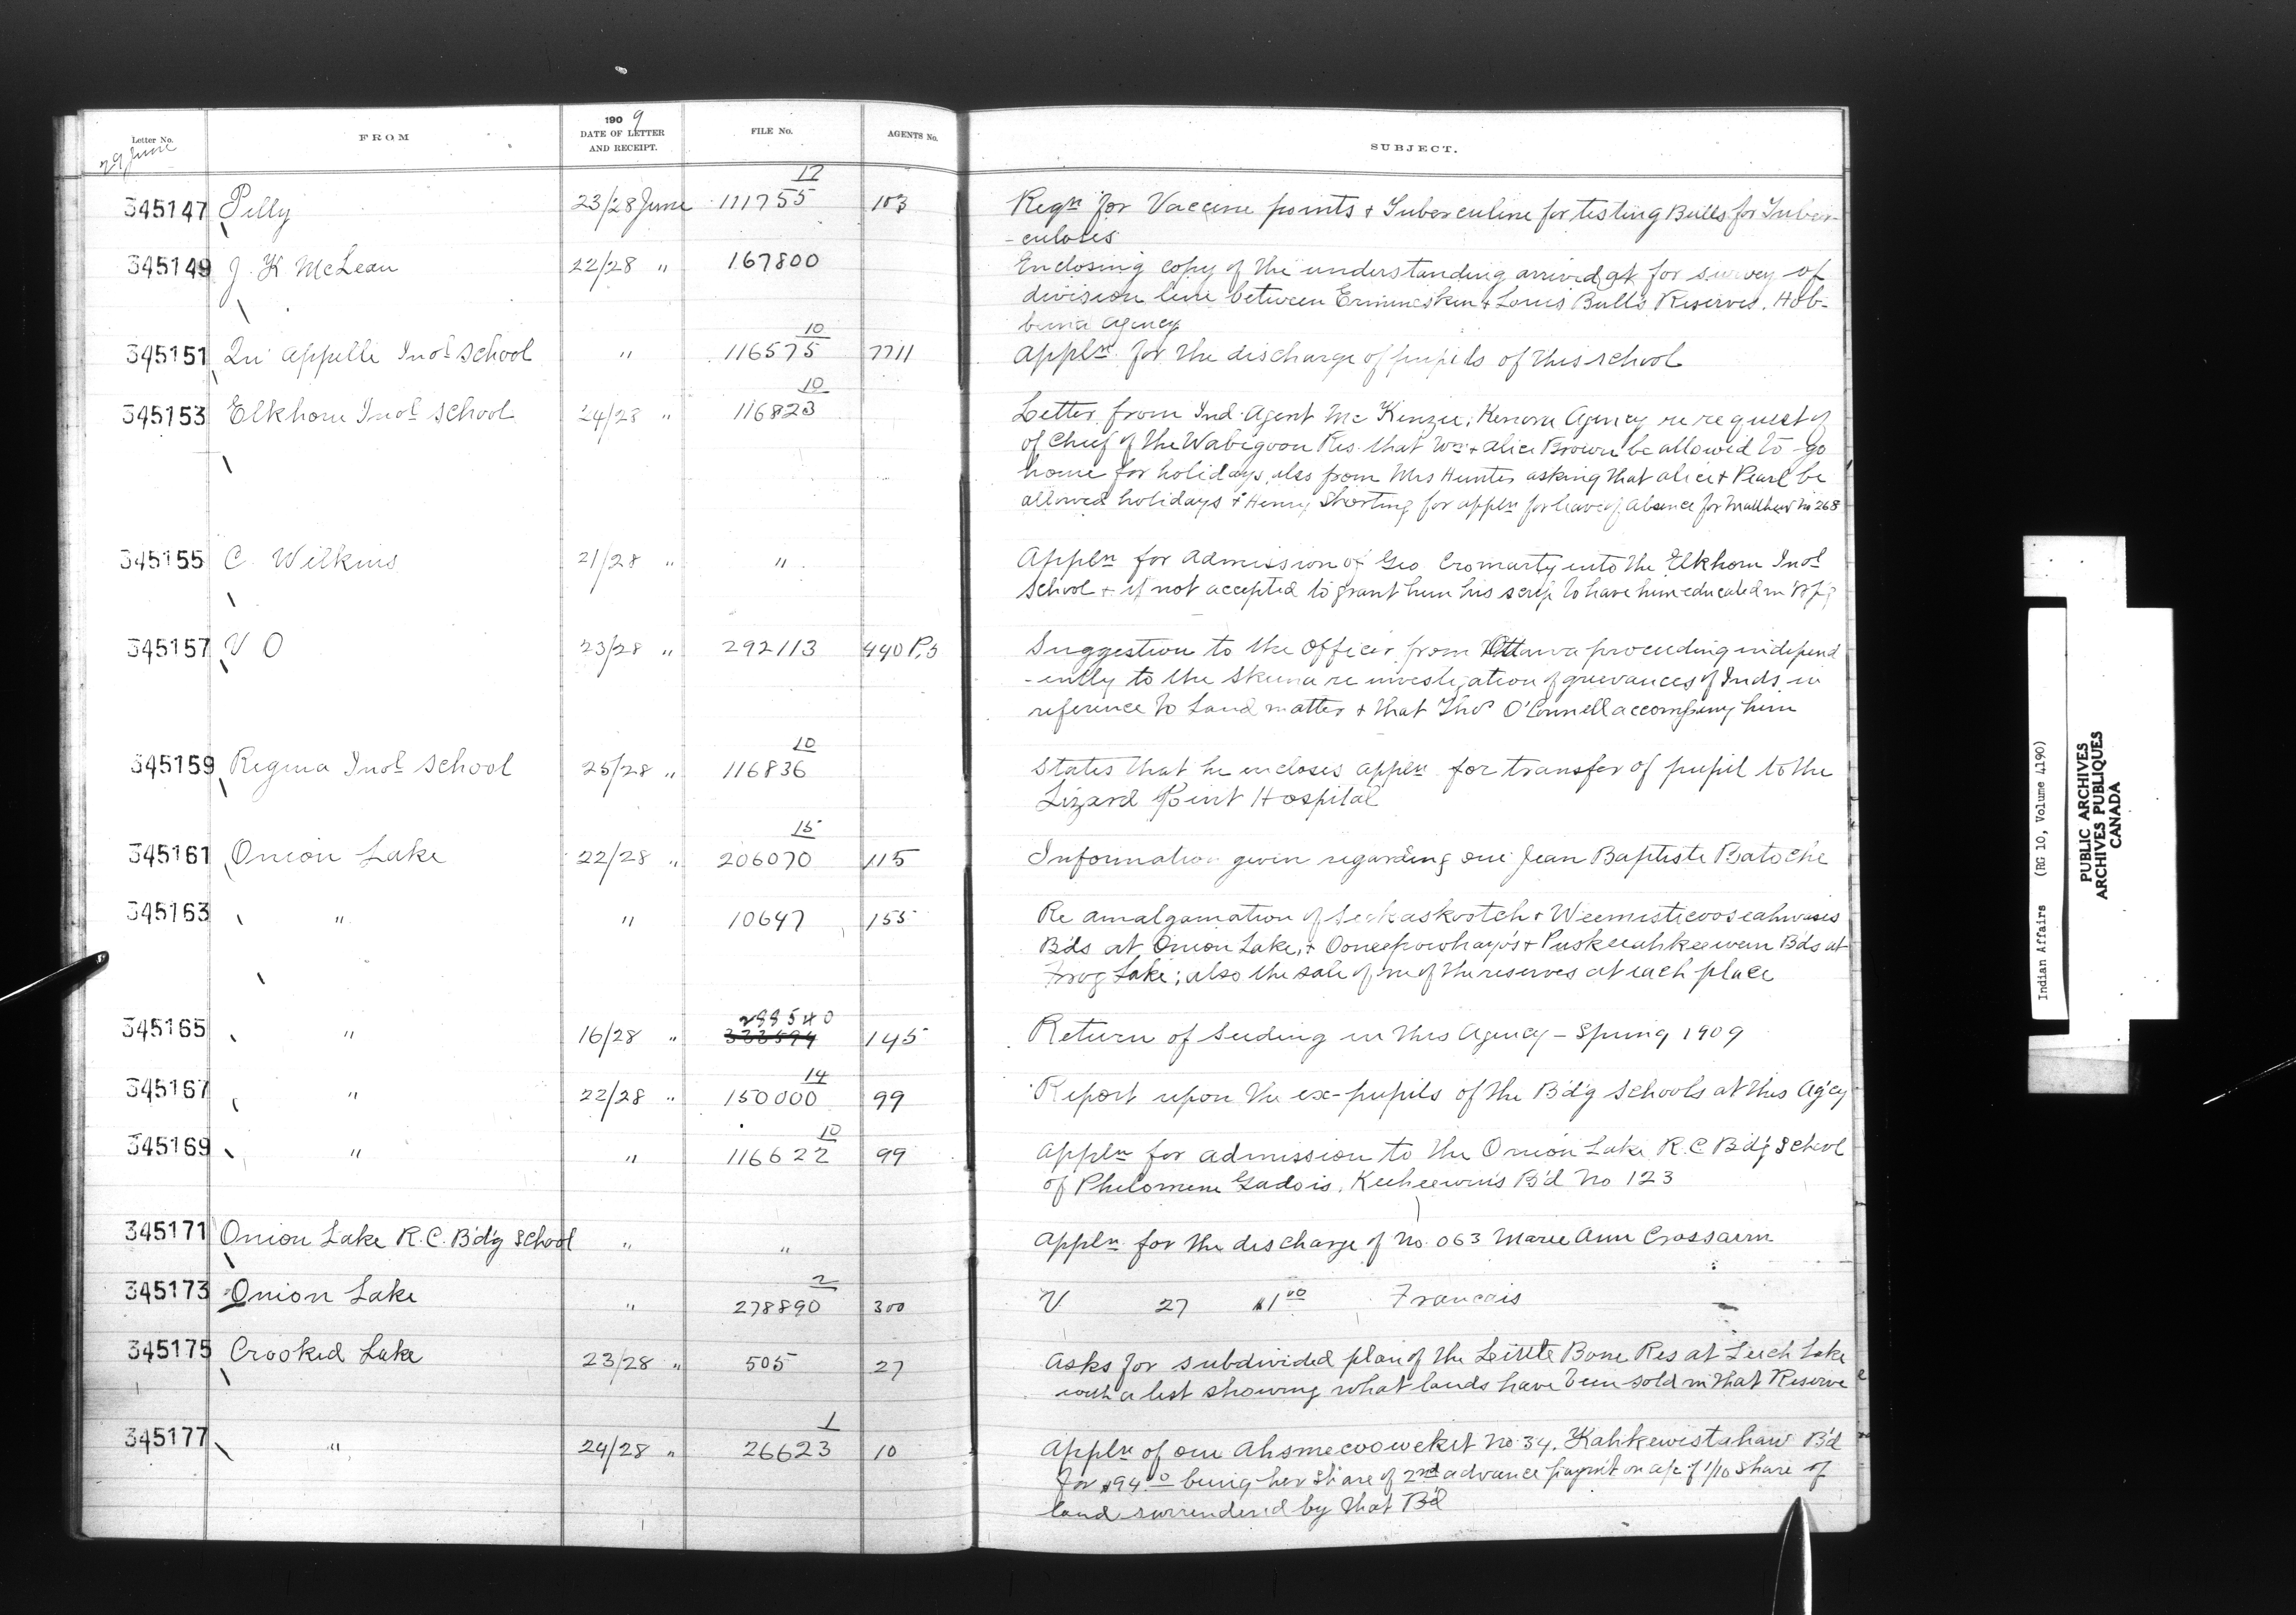 Letter No. FROM 1909 DATE OF LETTER AND RECEIPT. FILE No. AGENTS No. SUBJECT.
29 June
345147 Pelly 23/28 June 17 111755 103 Reqn for Vaccine points & Tuberculine for testing Bulls for Tuber-
-culoses
345149 J. K McLean 22/28 " 167800 Enclosing copy of the understanding arrived at for survey of
division line between Ermineskin & Louis Bulls Reserves. Hob-
bema Agency
345151 Qu'Appelle Indl School " 10 116575 7711 Appln for the discharge of pupils of this school
345153 Elkhorn Indl School 24/28 " 10 116823 Letter from Ind. Agent McKenzie, Kenora Agency re request of
of Chief of the Wabigoon Res. that Wm & Alice Brown be allowed to go
home for holidays, also from Mrs Hunter asking that Alice & Pearl be
allowed holidays & Henry for appln for leave of absence for Matthew No 268
345155 C. Wilkins 21/28 " " Appln for admission of Geo Cromarty into the Elkhorn Indl
School & if not accepted to grant him his scrip to have him educated in
345157 V O 23/28 " 292113 440 P.5 Suggestion to the Officer from Ottawa proceeding independ
-ently to the Skeena re investigation of grievances of Inds in
reference to Land matter & that Thos O'Connell accompany him
345159 Regina Indl School 25/28 " 10 116836 States that he encloses appln for transfer of pupil to the
Lizard Point Hospital
345161 Onion Lake 22/28 " 15 206070 115 Information given regarding one Jean Baptiste Batoche
345163 " " 10647 155 Re amalgamation of Seekaskootch & Weemisticooseahwasis
Bds at Onion Lake, & Ooneepowhayo's & Puskeeahkeewein Bds at
Frog Lake; also the sale of one of the reserves at each place
345165 " 16/28 " 299540 333594 145 Return of Seeding in this Agency - Spring 1909
345167 " 22/28 " 14 150000 99 Report upon the ex-pupils of the Bd'g Schools at this Ag'cy
345169 " " 10 116622 99 Appln for admission to the Onion Lake R.C Bd'g School
of Philomene Gadois, Keeheewin's B'd No 123
345171 Onion Lake R.C. Bd'g School " " Appln for the discharge of No. 063 Marie Ann
345173 Onion Lake " 2 278890 300 V 27 $1 00 Francois
345175 Crooked Lake 23/28 " 505 27 Asks for subdivided plan of the Little Bone Res at Leech Lake
with a list showing what lands have been sold in that Reserve
345177 " 24/28 " 1 26623 10 Appln of one Ahsmecooweket No. 34, Kahkewistahaw B'd
for $94.00 being her share of 2nd advance paym't on a/c of 1/10 share of
land surrendered by that B'd
Indian Affairs (RG 10, Volume 4190)
PUBLIC ARCHIVES
ARCHIVES PUBLIQUES
CANADA